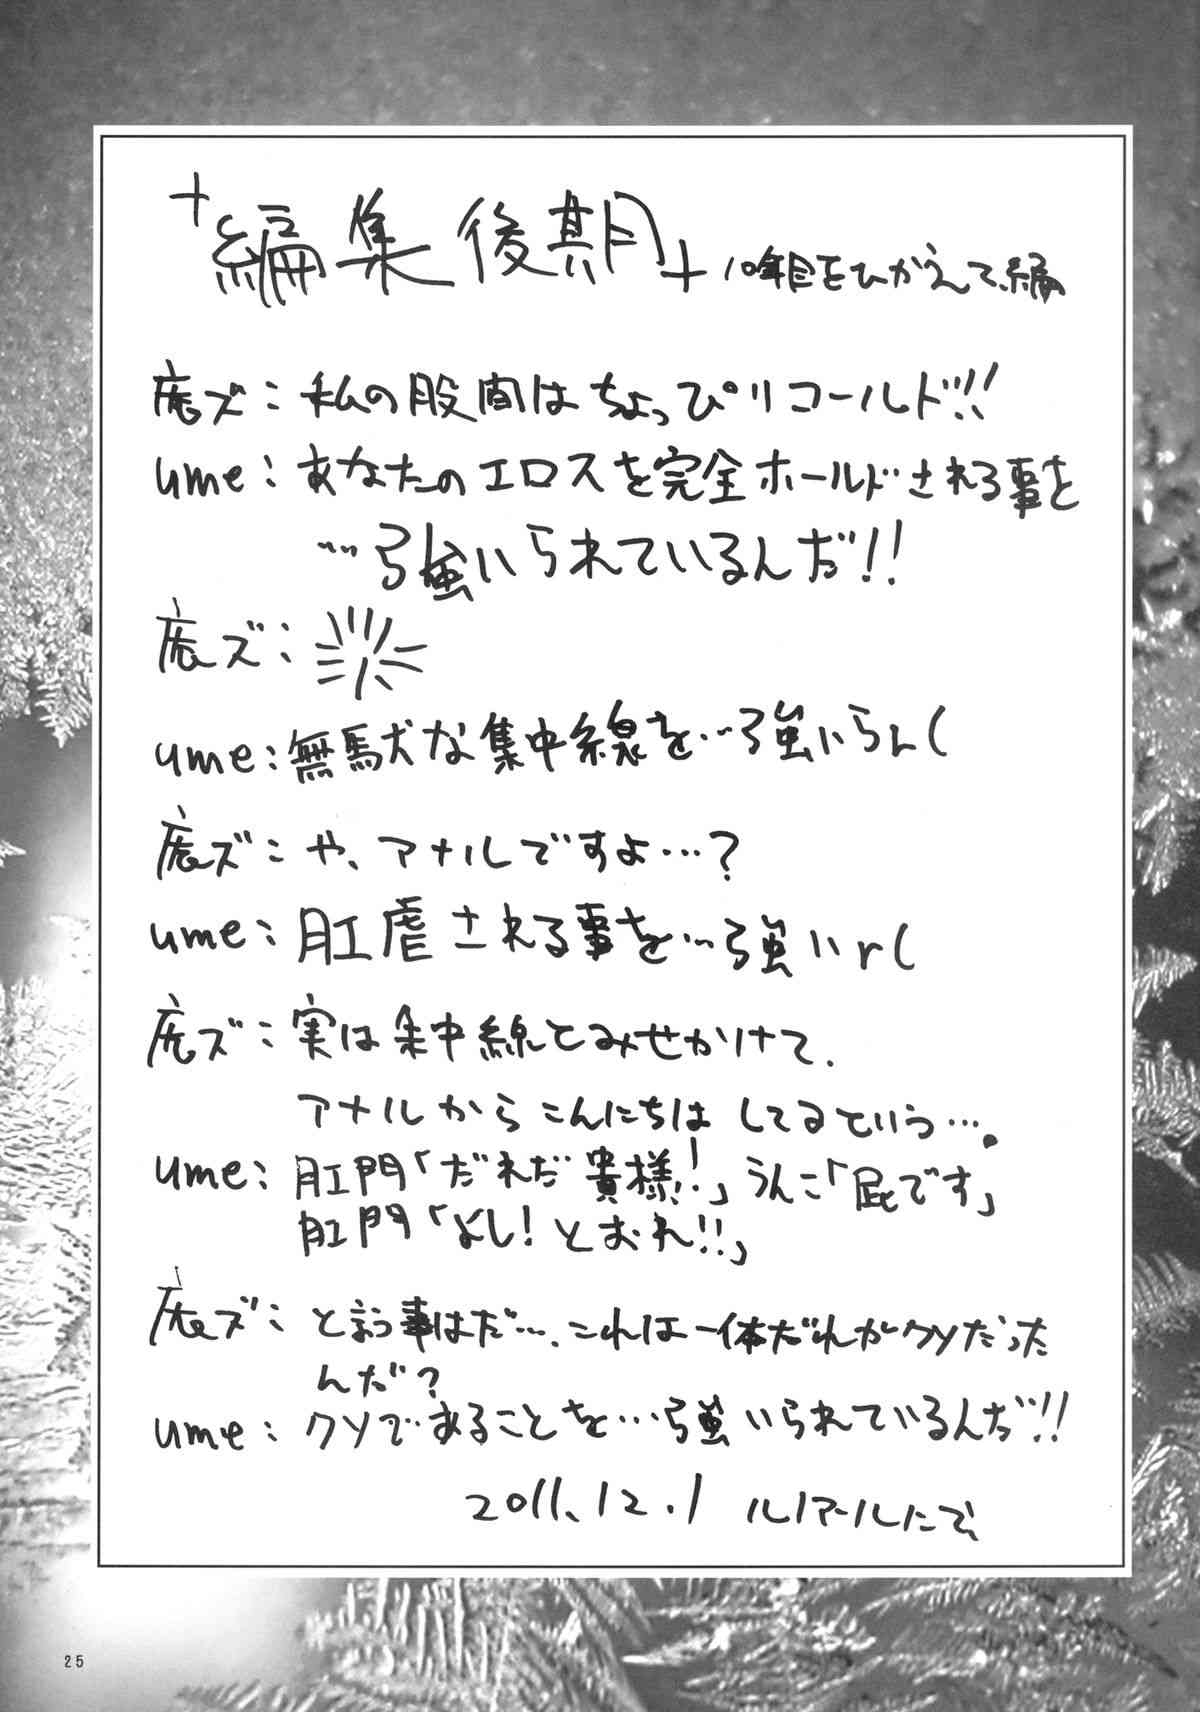 +編集後期+ 10年目をひかえて編
庵ズ：私の股間はちょっぴりコールド!!!
ume：あなたのエロスを完全ホールドされる事を
…強いられているんだ!!
庵ズ：
ume：無駄な集中線を…強いらん(
庵ズ：や、アナルですよ…?
ume：肛虐される事を…強いr(
庵ズ：実は集中線とみせかけて、
アナルからこんにちはしてるという…。
ume：肛門「だれだ貴様!!」うんこ「屁です」
肛門「よし!とおれ!!」
庵ズ：と言う事はだ…、これは一体だれがクソだった
んだ?
ume：クソであることを…強いられているんだ!!!
2011.12.1 ルノアールにて
25